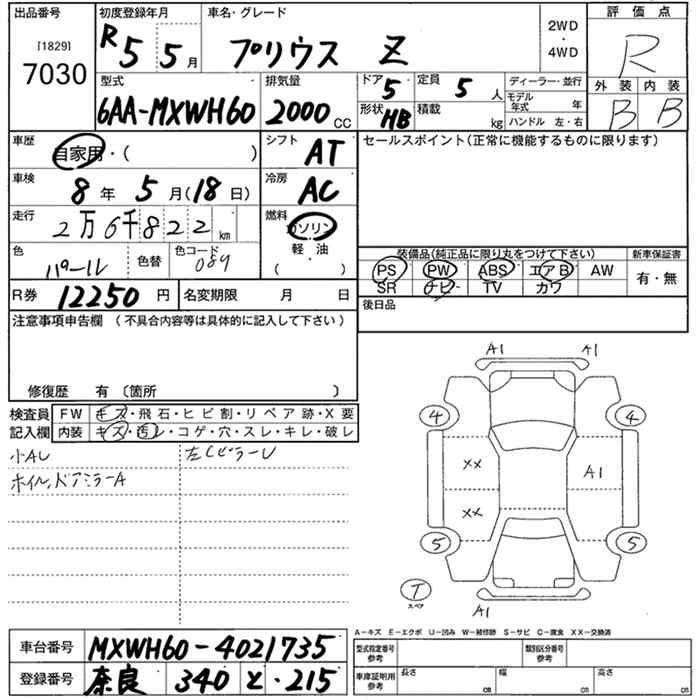 出品番号 初度登録年月 車名・グレード 評価点
[1829]
7030
R5 5月 プリウス Z 2WD・4WD R
型式 排気量 ドア 5 定員 5人 ディーラー・並行 外装 内装
6AA-MXWH60 2000cc 形状 HB 積載 kg モデル年式 年 B B
ハンドル 左・右
車歴 自家用・( ) シフト AT セールスポイント(正常に機能するものに限ります)
車検 8年 5月(18日) 冷房 AC
走行 2万6千822km 燃料 ガソリン
軽・油
( )
色 パール 色替 色コード 089
装備品(純正品に限り丸をつけて下さい) 新車保証書
PS PW ABS エアB AW 有・無
SR ナビ TV カワ
R券 12250円 名変期限 月 日 後日品
注意事項申告欄 (不具合内容等は具体的に記入して下さい)
修復歴 有 〔箇所 〕
検査員 FW キズ・飛石・ヒビ割・リペア跡・X要
記入欄 内装 キズ・汚レ・コゲ・穴・スレ・キレ・破レ
小AU 左Cピラーし
ホイル、ドアミラーA
A1 A1
4 4
XX A1
XX
5 5
T
スペア
A1
A-キズ E-エクボ U-凹み W-補修跡 S-サビ C-腐食 XX-交換済
車台番号 MXWH60-4021735 型式指定番号 参考 類別区分番号 参考
登録番号 奈良 340 と ・215 車庫証明用 参考 長さ cm 幅 cm 高さ cm